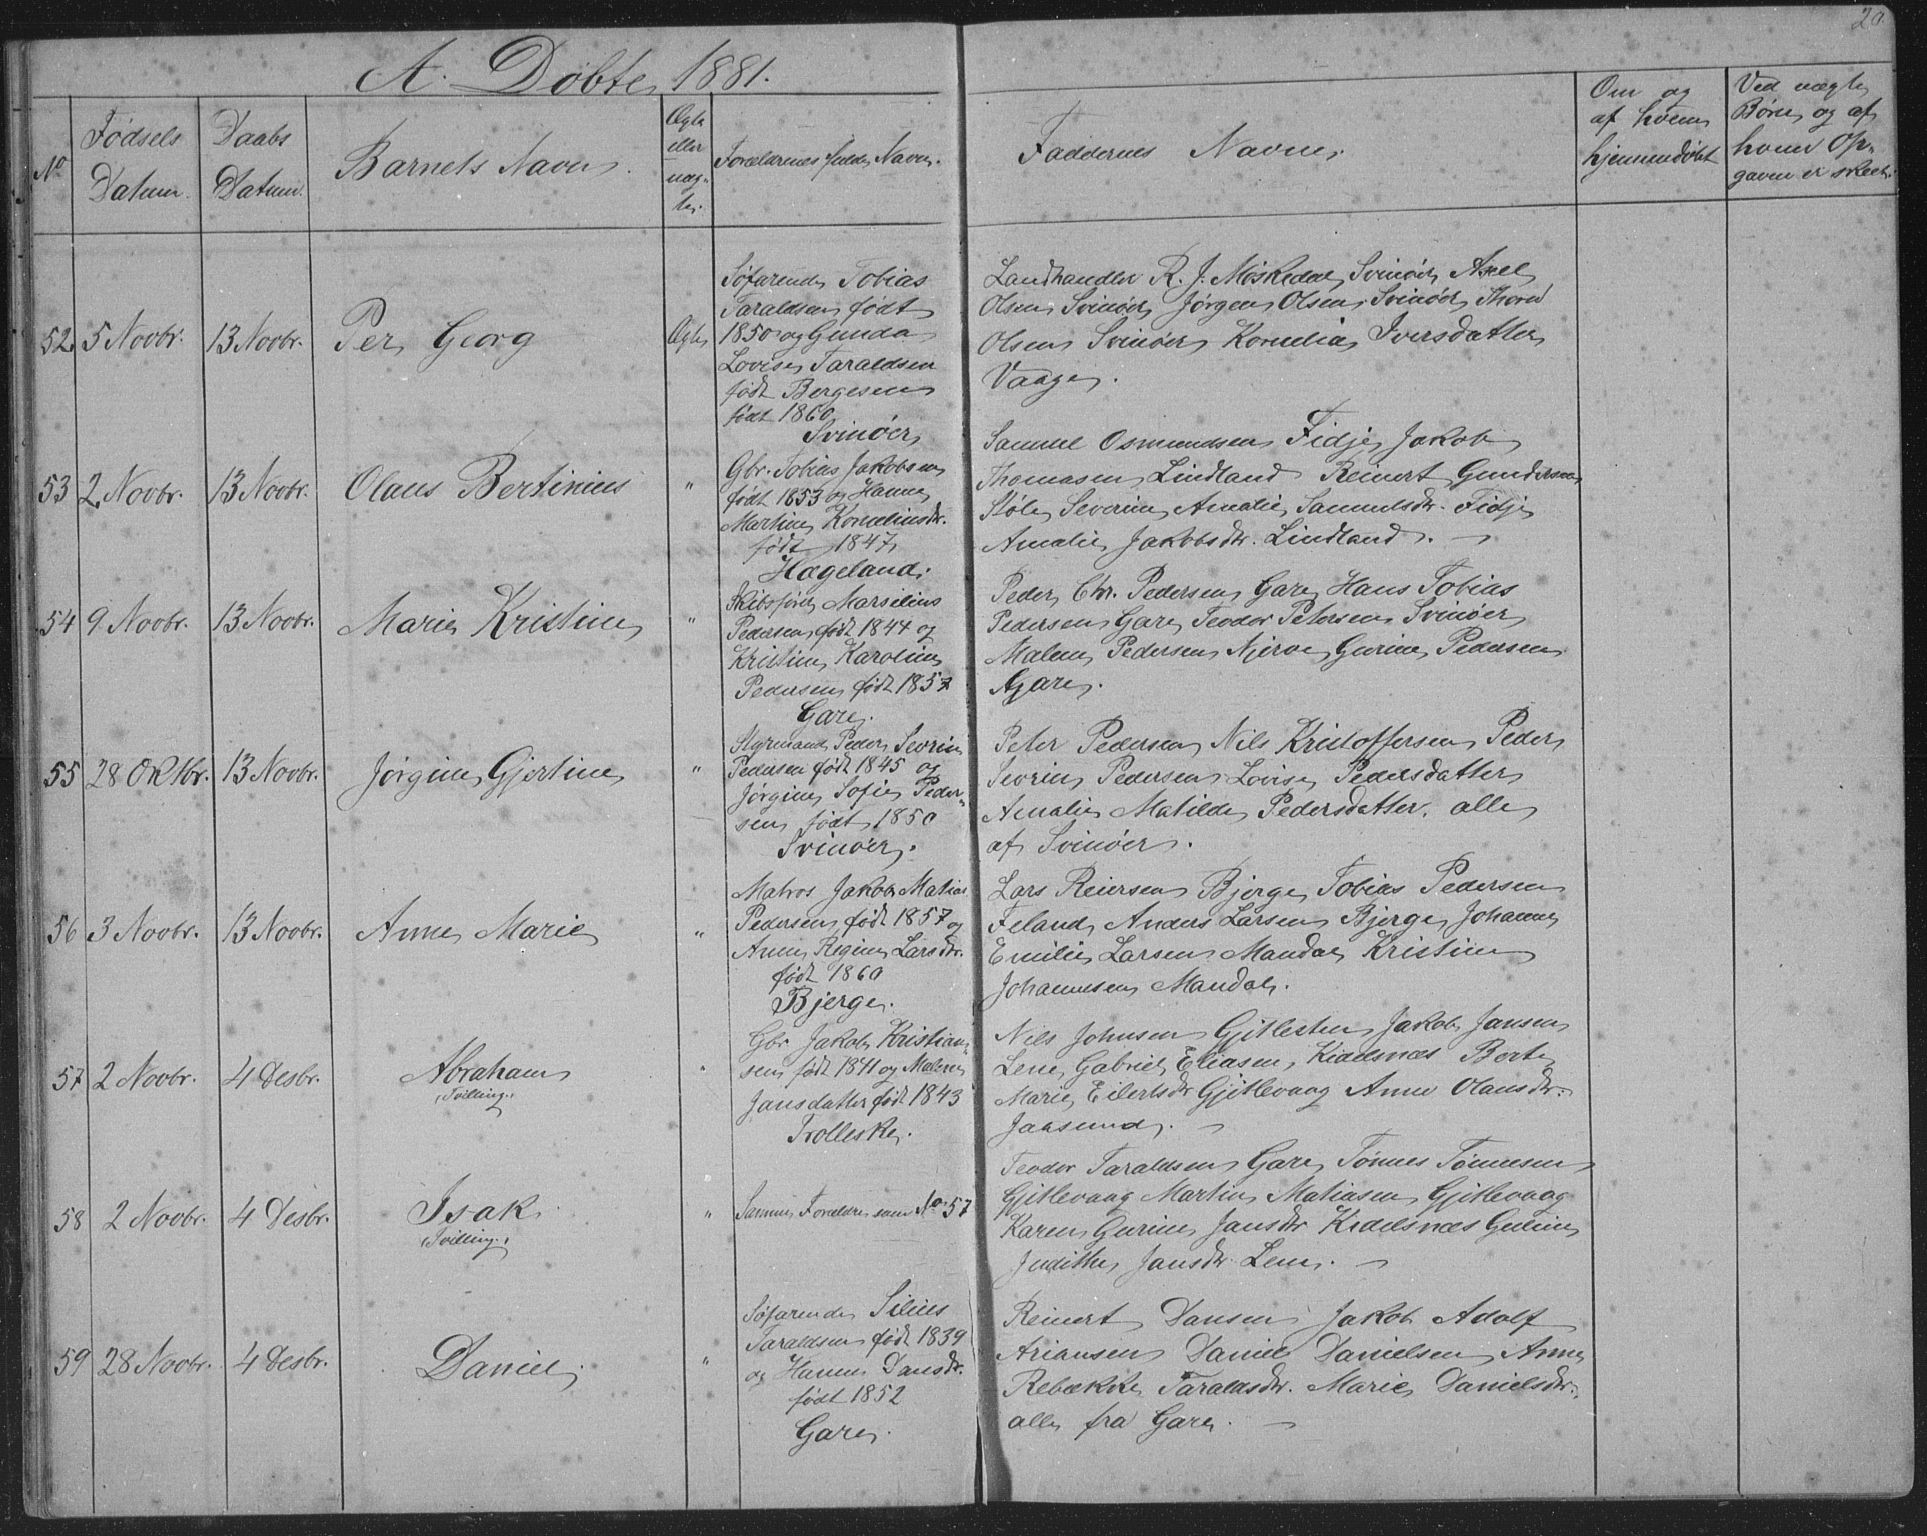 20.
A. Døbte, 1881.
No
Fødsels Datum.
Daabs Datum.
Barnets Navn.
Ægte eller uæg- te.
Forældrenes fulde Navn.
Faddernes Navne.
Om og af hvem hjemmedøbt
Ved uægte Børn, og af hvem Op- gaven er skeet.
52. 5 Novbr. 13 Novbr. Per Georg Ægte
Søfarende Tobias
Taraldsen født
1850 og Gunda
Lovise Taraldsen
født Bergesen
født 1860
Svinøer
Landhandler R. J. Moskedal Svinøer, Axel
Olsen Svinøer, Jørgen Olsen Svinøer, Thorv
Olsen Svinøer Kornelia Iversdatter
Vaage.
53 2 Novbr. 13 Novbr. Olaus Bertinius "
Gbr. Tobias Jakobsen
født 1853 og Hanne
Martine Korneliusdr.
født 1847
Hægeland.
Samuel Osmundsen Fidje Jakob
Thomasen Lindland Reinert Gundersen
Støle Severine Amalie Samuelsdr. Fidje
Amalie Jakobsdr. Lindland.
54 9 Novbr. 13 Novbr. Marie Kristine "
Skibsfører Marselius
Pedersen født 1844 og
Kristine Karoline
Pedersen født 1857
Gare.
Peder Chr. Pedersen Gare Hans Tobias
Pedersen Gare Teodor Petersen Svinøer
Malene Pedersen Njerve Gurine Pedersen
Gare.
55 28 Oktbr. 13 Novbr. Jørgine Gjertine "
Styrmand Peder Sevrin
Pedersen født 1845 og
Jørgine Sofie Peder-
sen født 1850
Svinøer.
Peter Pedersen Nils Kristoffersen Peder
Sevrin Pedersen Lovise Pedersdatter
Amalie Matilde Pedersdatter. alle
af Svinøer.
56 3 Novbr. 13 Novbr. Anne Marie "
Matros Jakob Matias
Pedersen født 1857 og
Anne Regine Larsdr.
født 1860
Bjerge.
Lars Reiersen Bjerge Tobias Pedersen
Feland Anders Larsen Bjerge Johanne
Emilie Larsen Mandal Kristine
Johannesen Mandal.
57 2 Novbr. 4 Desbr. Abraham "
(Tvilling.)
Gbr Jakob Kristian-
sen født 1841 og Malene
Jansdatter født 1843
Trolleske.
Nils Johnsen Gitlesten Jakob Jansen
Lene Gabriel Eliasen, Kidelsnæs Berte
Marie Eilertsdr Gjitlevaag Anne Olausdr.
Jaasund.
58 2 Novbr. 4 Desbr. Isak "
(Tvilling.)
Samme Forældre som No. 57
Teodor Taraldsen Gare Tønnes Tønnesen
Gjitlevaag Martin Matiasen Gjitlevaag
Karen Gurine Jansdr Kidelsnæs Guline
Judithe Jansdr. Lene.
59 28 Novbr. 4 Desbr. Daniel "
Søfarende Silius
Taraldsen født 1839
og Hanne Dansdr.
født 1852
Gare.
Reinert Dansen Jakob Adolf
Ariansen Daniel Danielsen Anne
Rebække Taraldsdr. Marie Danielsdr.
alle fra Gare.